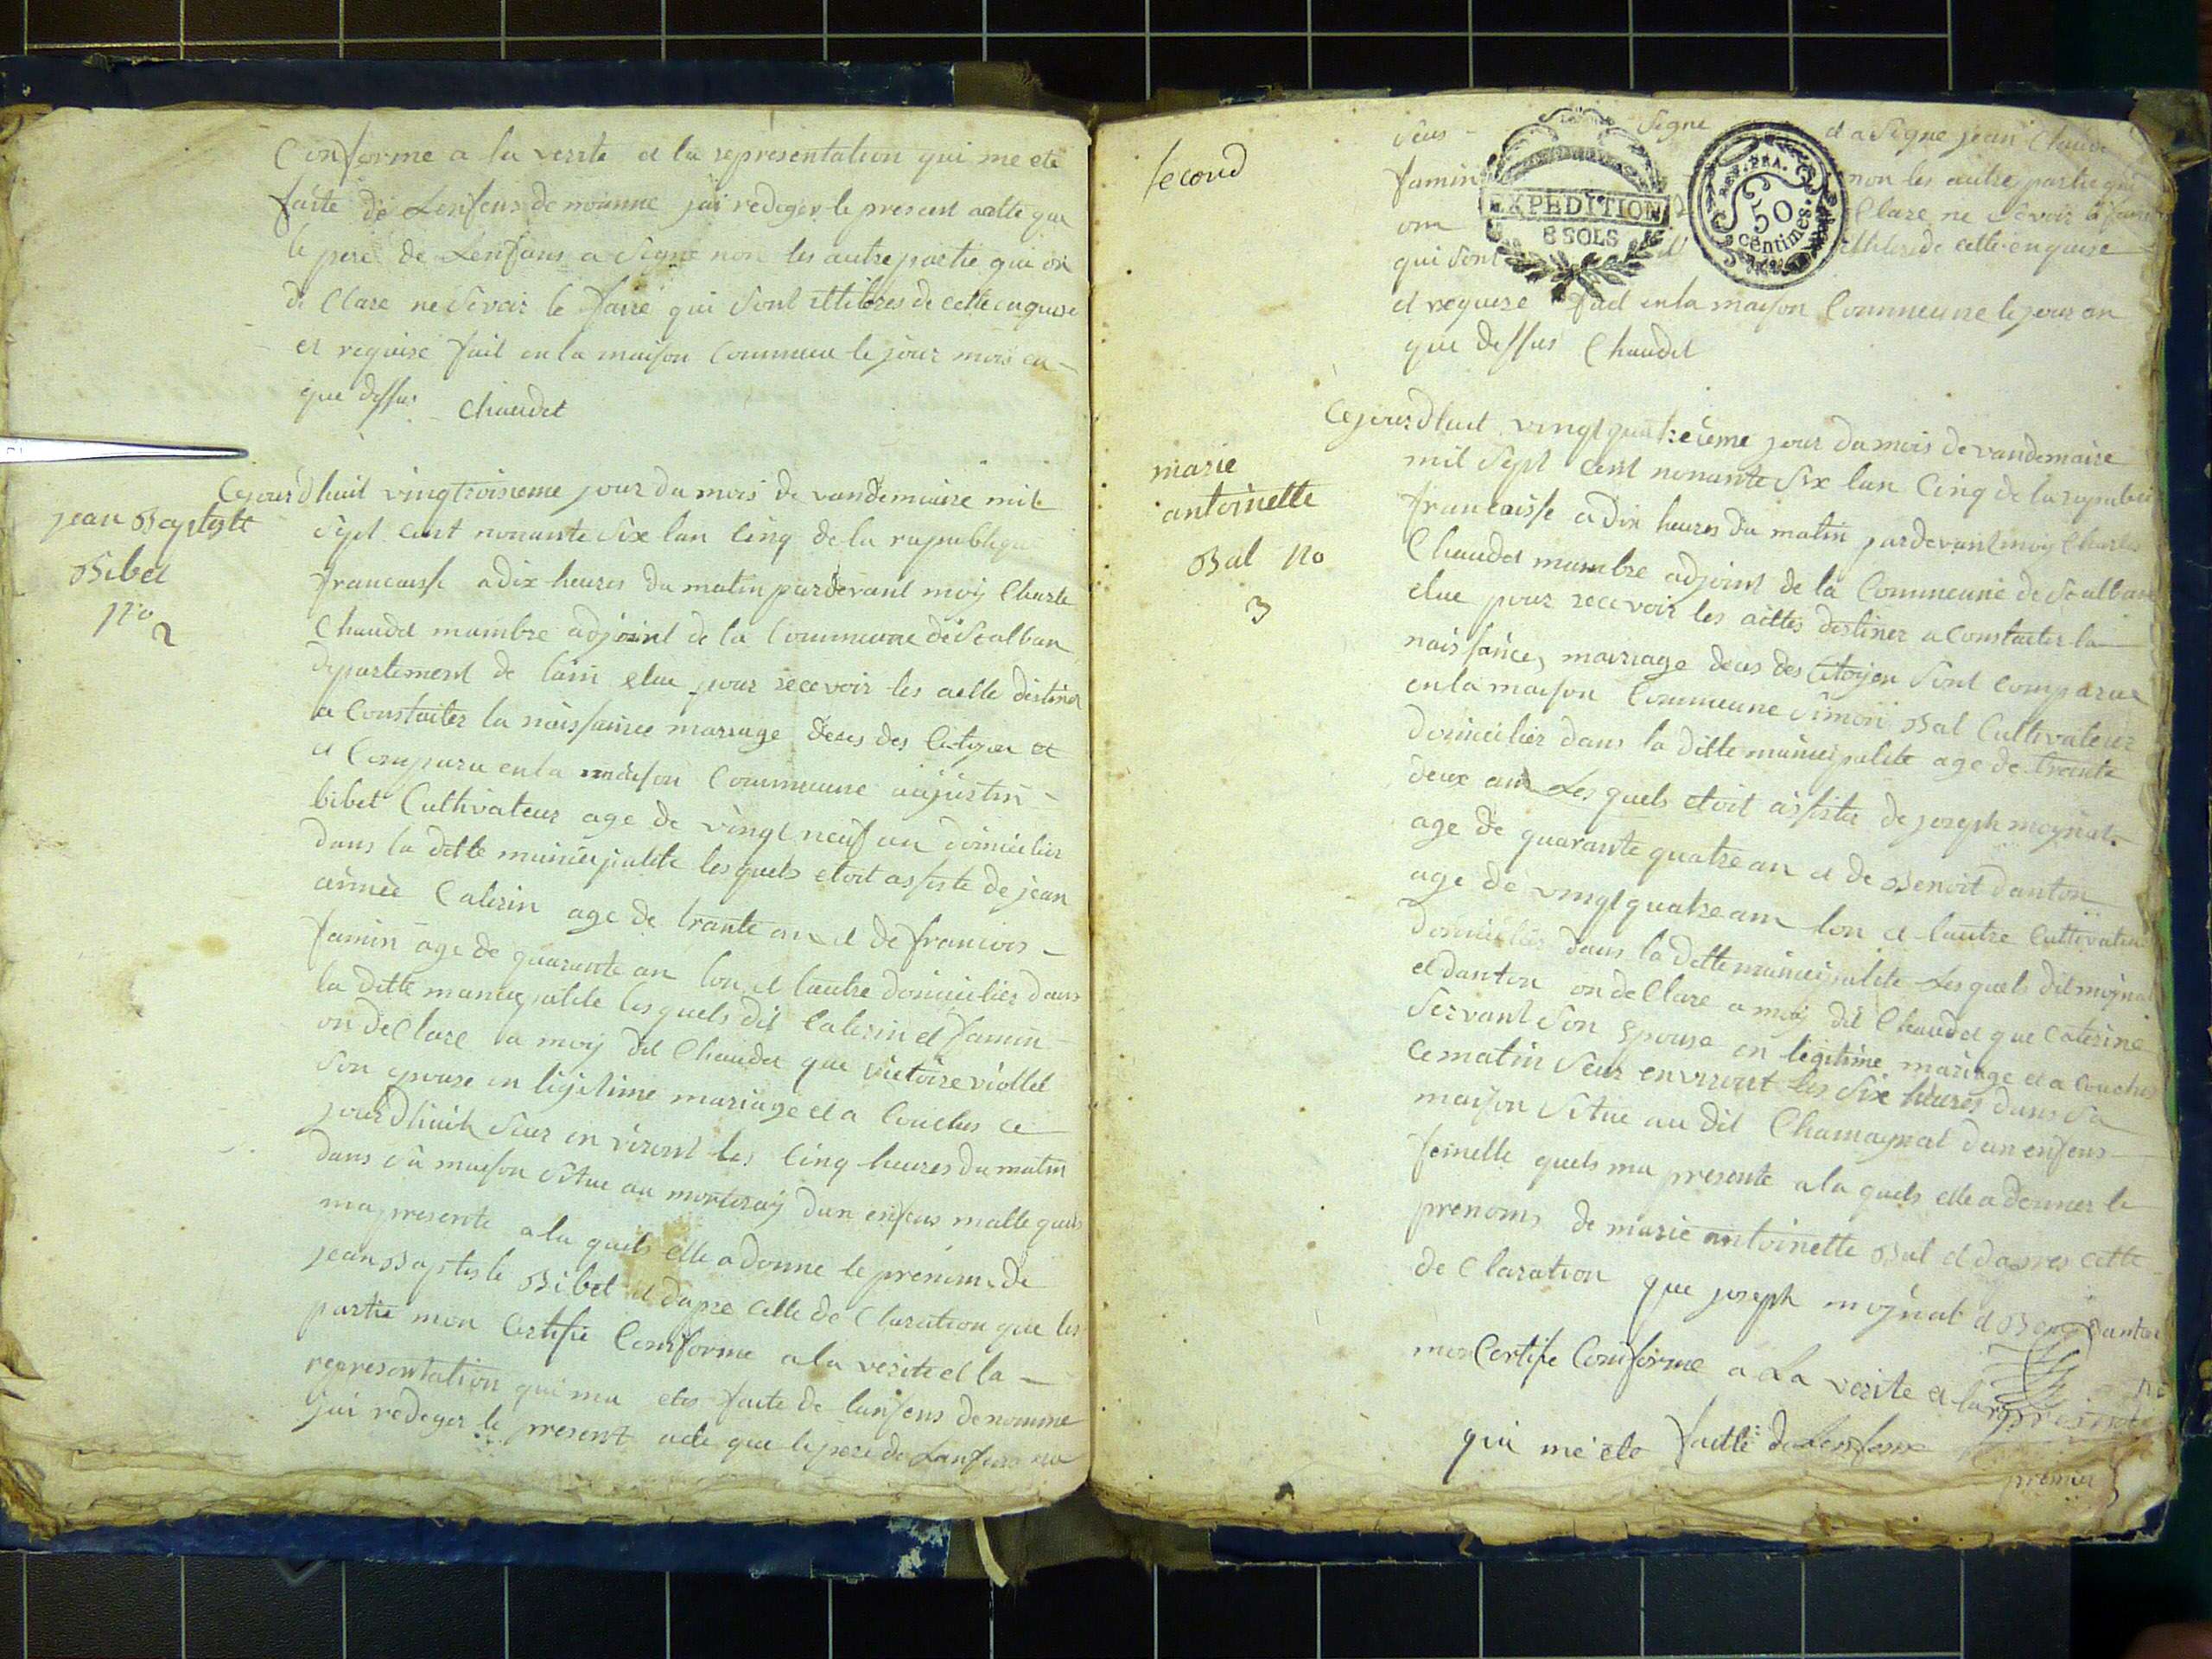 Conforme a la verite et la representation qui me ete
faite de Lenfens denomme jai redeger le present actte que
le pere de Lenfans a Signe non les autre partie qui on
de Clare ne Sevoir le faire qui Sont illitéres de cette enquise
et requise fait en la maison Commune le jour mois en
que dessus Chaudet
Cejourdhuit vingtroisieme jour du mois de vandemiaire mil
Sept cent nonante Six lan Cinq de la republique
francaisse a dix heures du matin pardevant moy Charle
Chaudet mambre adjoint de la Commune de St alban
departement de lain elue pour recevoir les actte destiner
a Constaiter la naissance mariage deces des Citoyen et
et Comparu en la maison Commune aujustin
bibet Cultivateur age de vingt neuf an domicilier
dans la ditte municipalite lesquels etoit assiste de jean
aimée Caterin age de trante an et de francois
famin age de quarante an lon et lautre domicilier dans
la ditte municipalite lesquels dit Caterin et famin
on de Clare a moy dit Chaudet que victoire viollet
Son epouse en ligitime mariage et a Couches ce
jourdhuit Seur en viront les Cinq heures du matin
dans sa maison Situe au morteray dun enfens malle quels
ma presente a la quels elle a donne le prenom de
jean Baptiste Bibet et dapre cette de Claration que les
partie mon Certifie Comforme a la verite et la
representation qui ma ete faite de lenfens denomme
jai redeger le present acte que le pere de Lanfens
jean Baptiste
Bibet
no
2
Second
Signe et a Signe jean Claude
famin non les autre partie qui
om Clare ne Sevoir le faire
qui Sont de cette enquise
et requise fait en la maison Commune le jour an
que dessus Chaudet
Cejourdhuit vingt quatreieme jour du mois de vandemaire
mil Sept cent nonante Six lan Cinq de la republi
francaisse a dix heures du matin pardevant moy Charles
Chaudet mambre adjoint de la Commune de St alban
elue pour recevoir les acttes destiner a Constaiter la
naissance, mariage deces des Citoyen Sont comparue
en la maison Commune Simon Bal Cultivateur
domicilier dans la ditte municipalite age de trante
deux an Lesquels etoit assister de joseph moynat
age de quarante quatre an et de Benoit danton
age de vingt quatre an lon et lautre Cultivateur
domicilies dans la ditte municipalite Lesquels dit moynat
et danton on de Clare a moy dit Chaudet que Caterine
Servant Son Epouse en legitime mariage et a Couches
ce matin Seur environt les Six heures dans Sa
maison Situe au dit Chamagnat dun enfens
femelle quels ma presente a la quels elle a donner le
prenoms de marie antoinette Bal et dapres cette
de Claration que joseph moynat et Benoit danton
mon Certifie Comforme a La verite et la represent
qui me ete faitte de Lenfens
premier
marie
antoinette
Bal no
3
EXPEDITION
8 SOLS
REP. FRA.
50
centimes